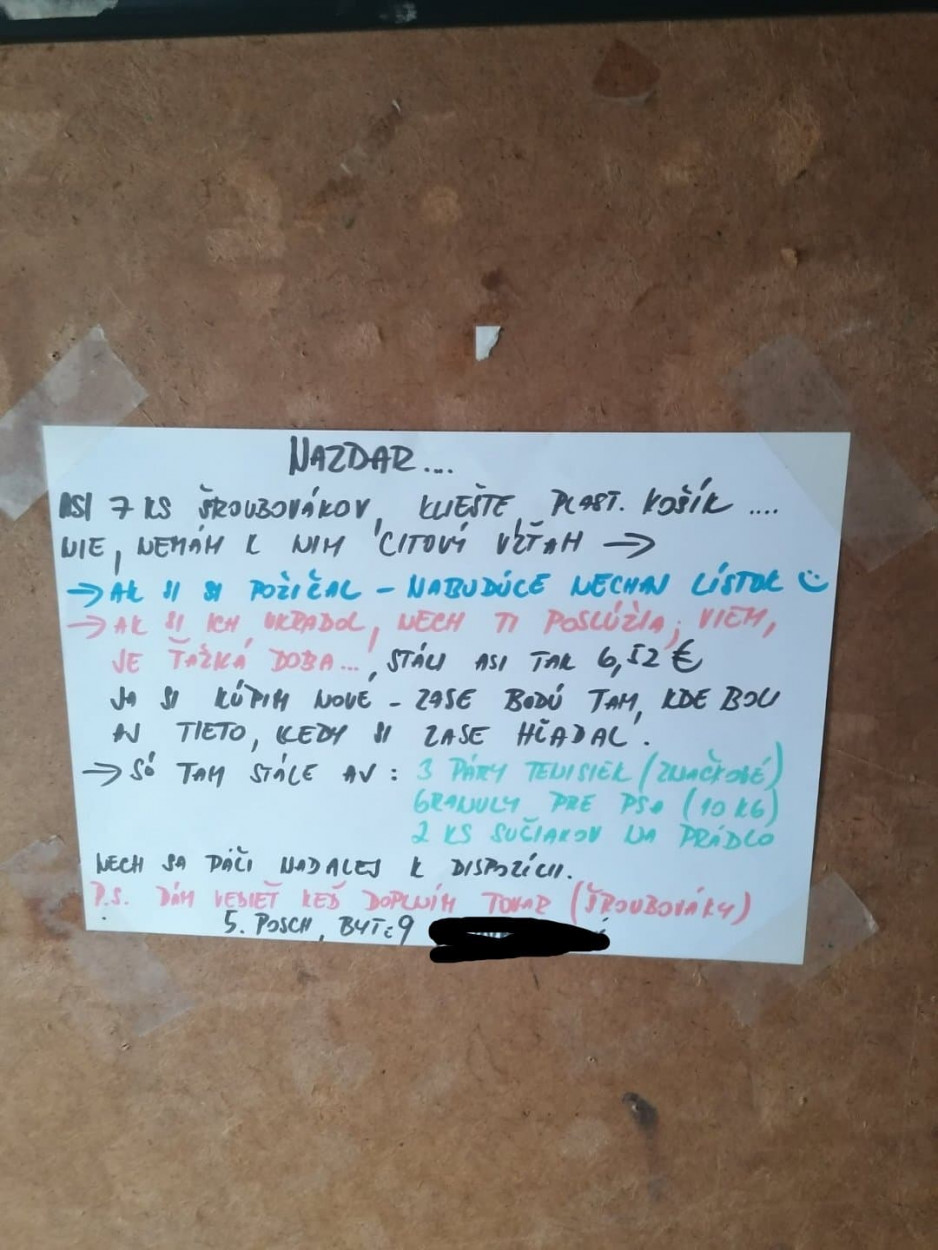 NAZDAR....
ASI 7 KS ŠROUBOVÁKOV, KLIEŠTE, PLAST. KOŠÍK ....
NIE, NEMÁM K NIM CITOVÝ VZŤAH →
→ AK SI SI POŽIČAL – NABUDÚCE NECHAJ LÍSTOK ☺
→ AK SI ICH UKRADOL, NECH TI POSLÚŽIA, VIEM,
JE ŤAŽKÁ DOBA..., STÁLI ASI TAK 6,52 €
JA SI KÚPIM NOVÉ – ZASE BODÚ TAM, KDE BOLI
AJ TIETO, KEDY SI ZASE HĽADAL.
→ SÓ TAM STÁLE AJ: 3 PÁRY TENISIEK (ZNAČKOVÉ)
GRANULY PRE PSA (10 KG)
2 KS SUČIAKOV NA PRÁDLO
NECH SA PÁČI NADALEJ K DISPOZÍCII.
P.S. DÁM VEDIEŤ KEĎ DOPLNÍM TOVAR (ŠROUBOVÁKY)
5. POSCH, BYT: 9